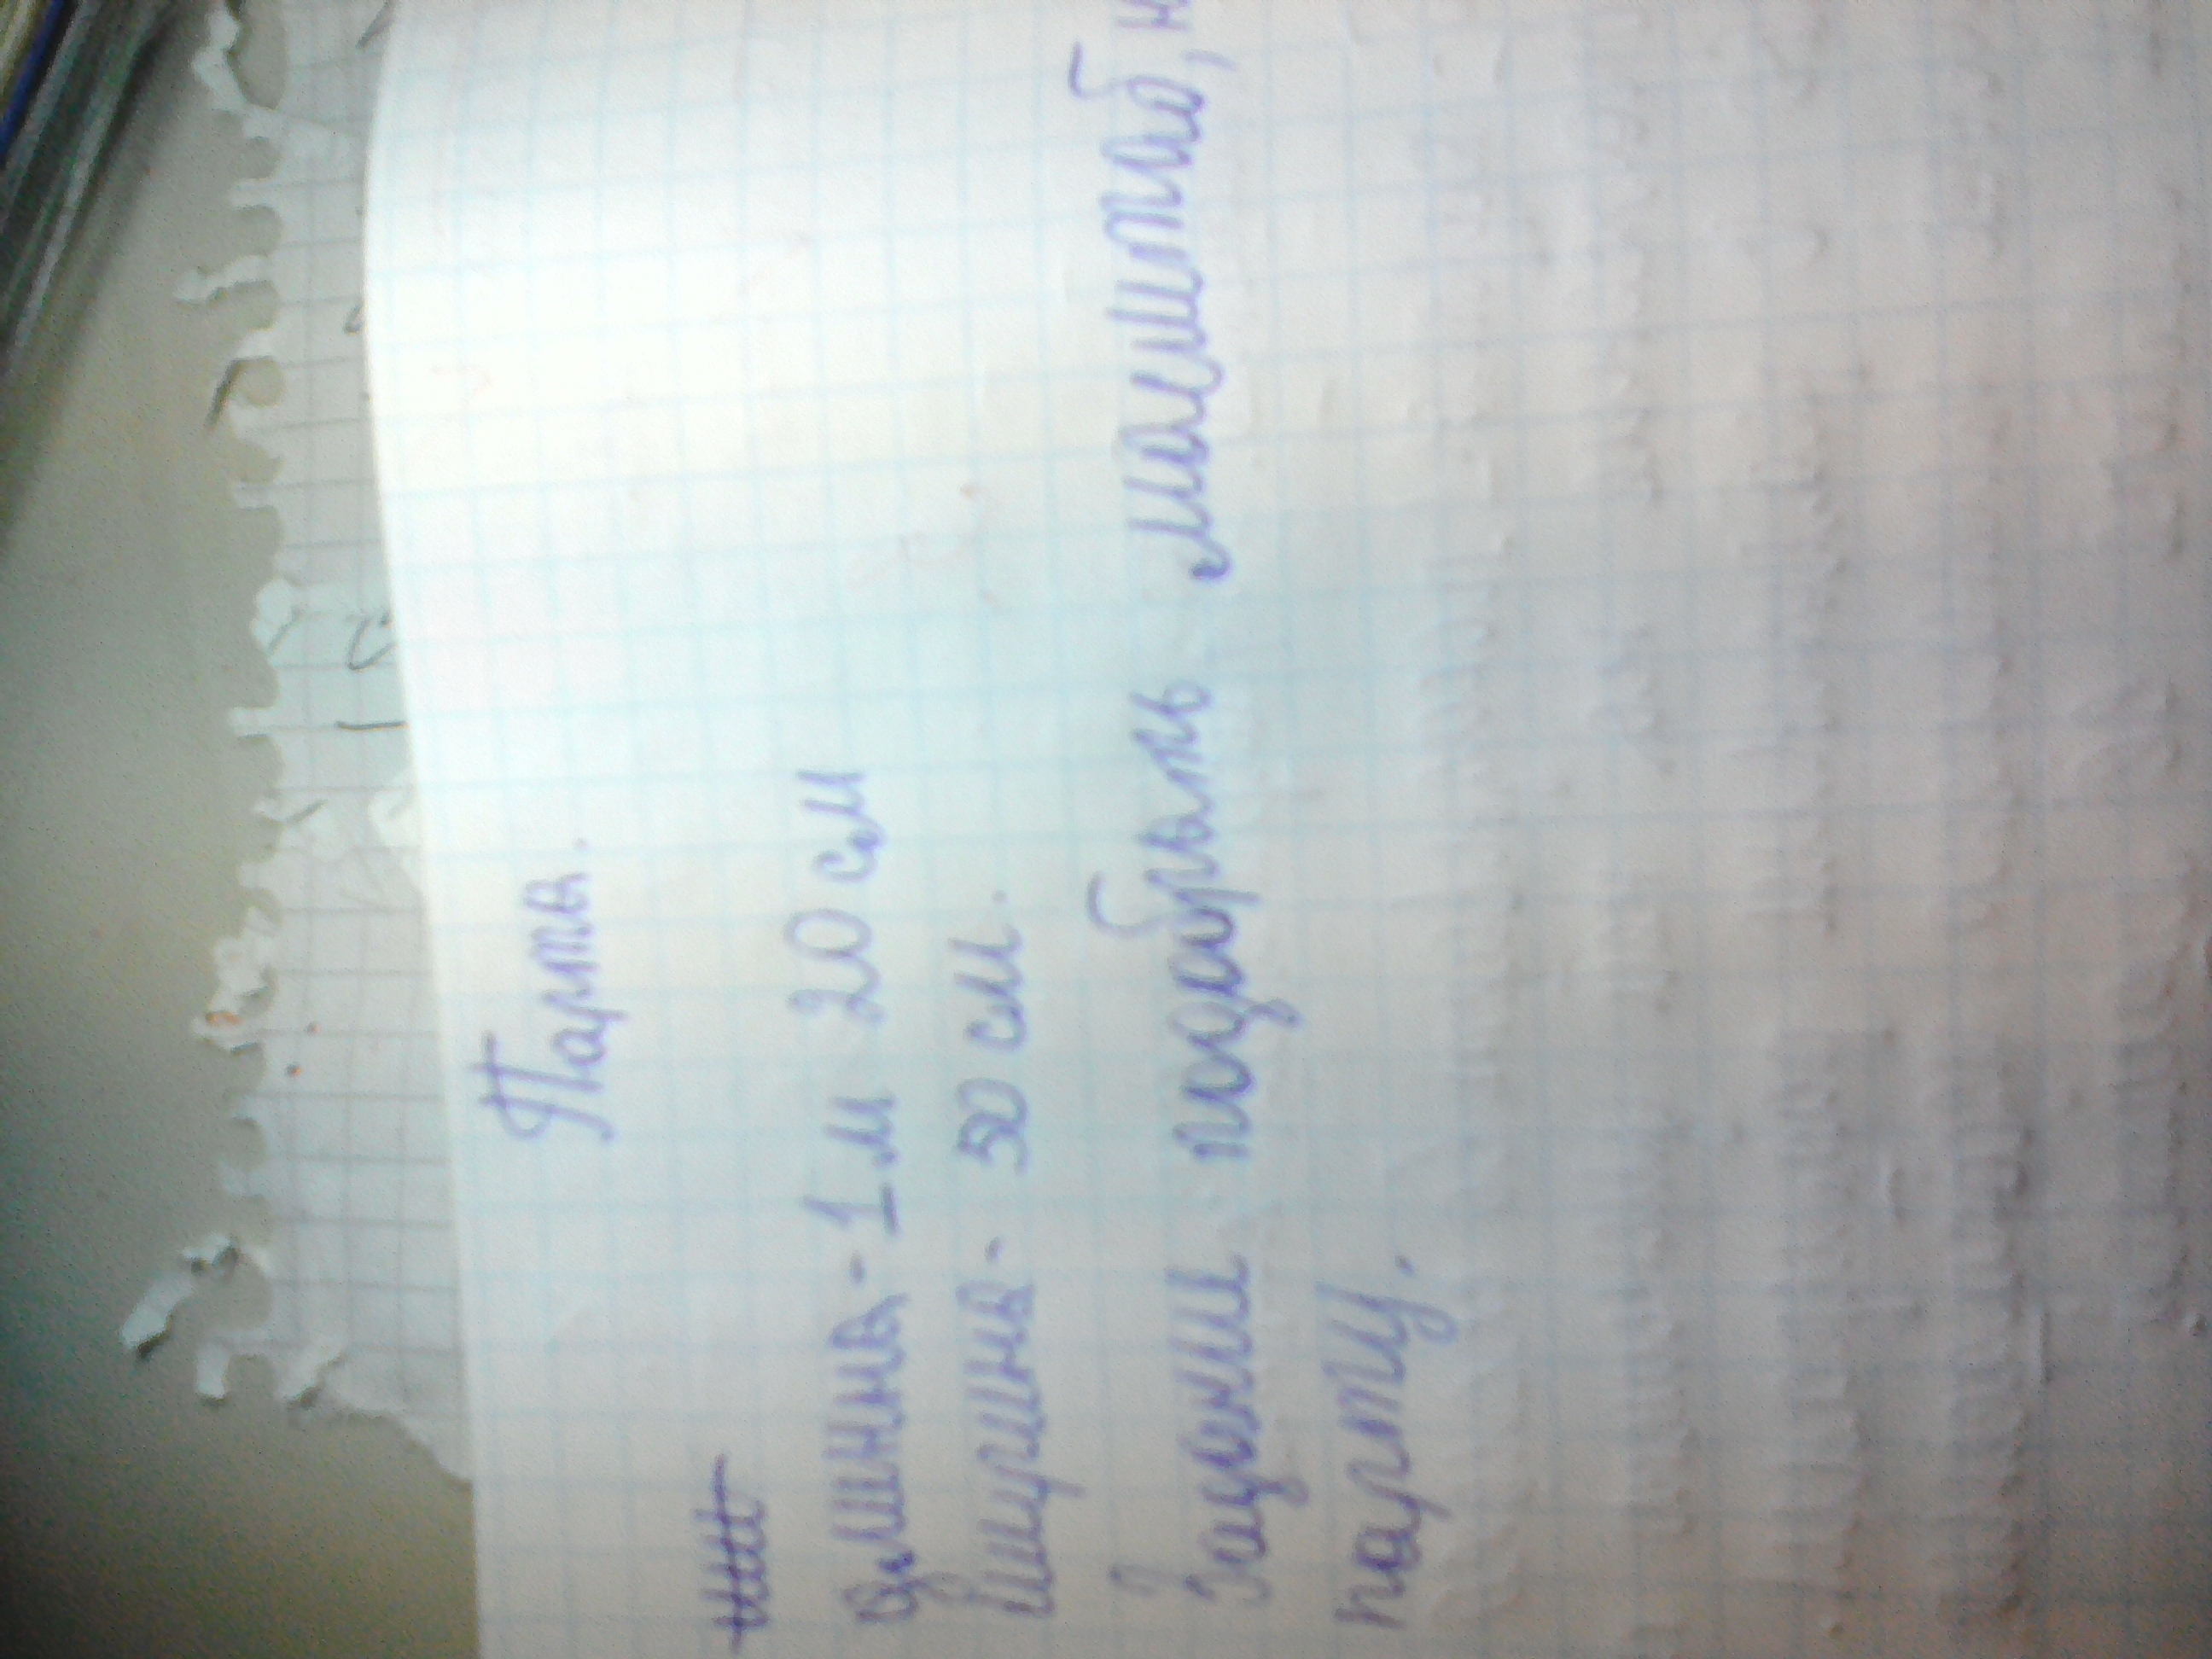 Парта.
Длинна - 1 м 20 см
Ширина - 50 см.
Задани подабрать масштаб, н
парту.